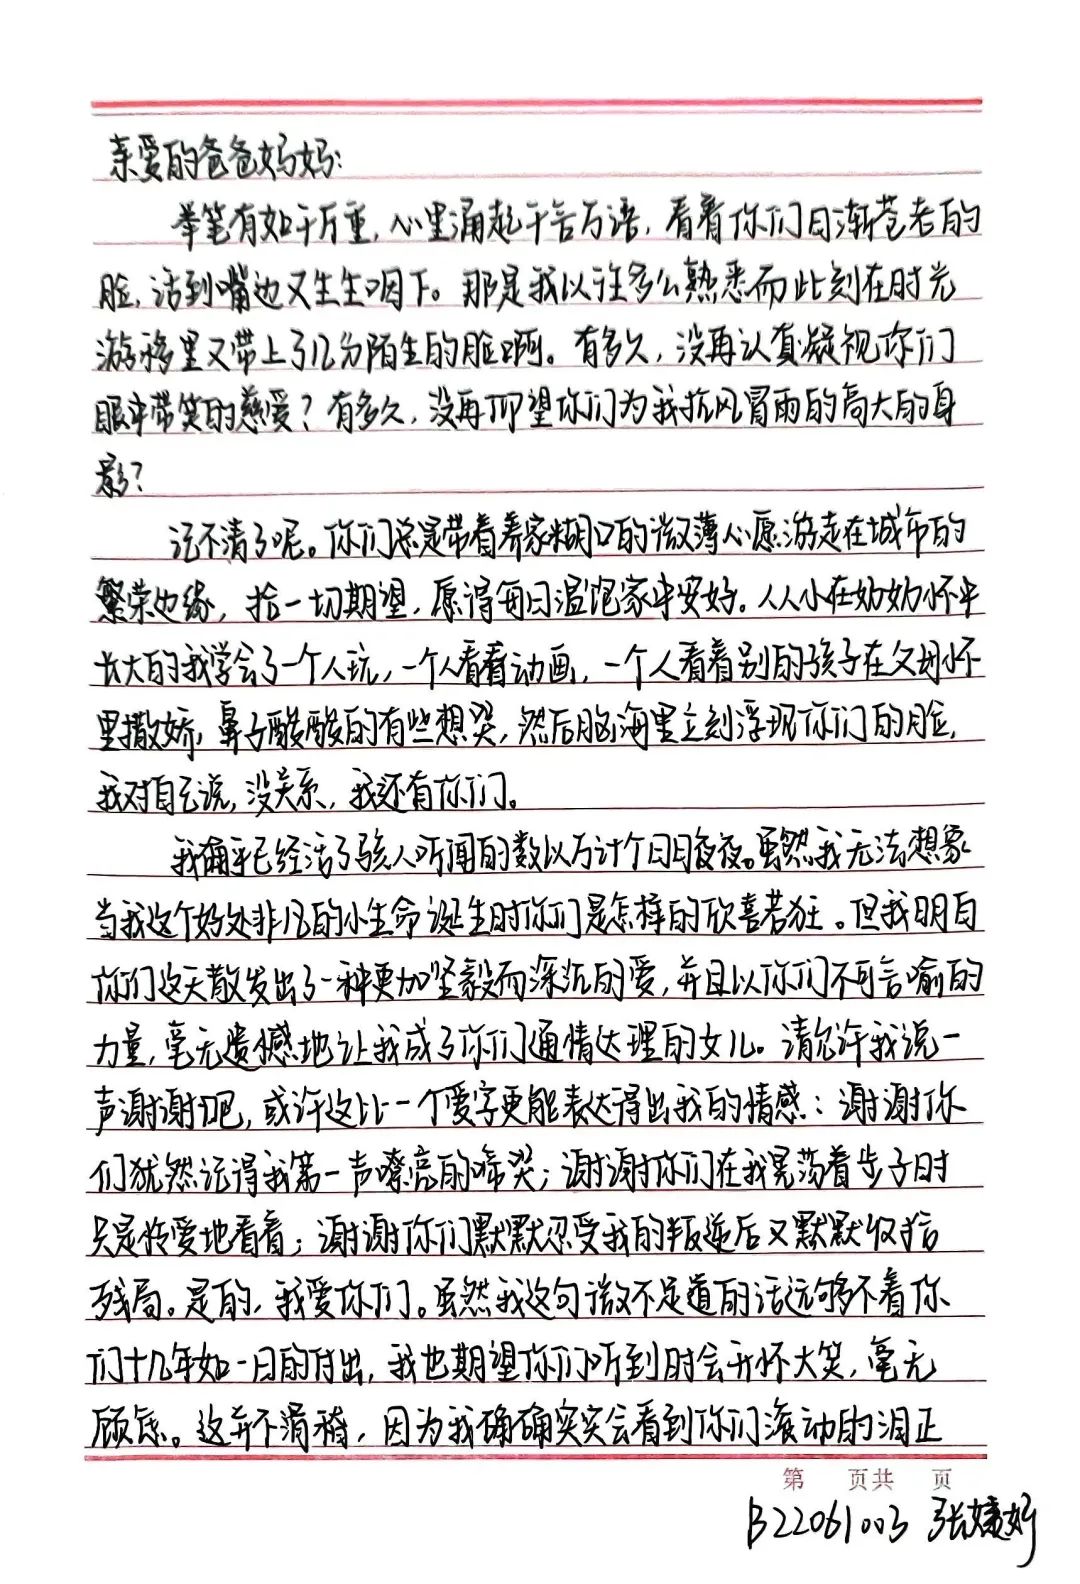 亲爱的爸爸妈妈：
举笔有如千万重，心里涌起千言万语，看着你们日渐苍老的
脸，话到嘴边又生生咽下。那是我以往多么熟悉而此刻在时光
游移里又带上了几分陌生的脸啊。有多久，没再认真凝视你们
眼中带笑的慈爱？有多久，没再仰望你们为我抗风冒雨的高大的身
影？
记不清了呢。你们总是带着养家糊口的微薄心愿游走在城市的
繁荣边缘，拾一切期望，愿得每日温饱家中安好。从小在奶奶怀中
长大的我学会了一个人玩，一个人看看动画，一个人看着别的孩子在父母怀
里撒娇，鼻子酸酸的有些想哭，然后脑海里立刻浮现你们的脸，
我对自己说，没关系，我还有你们。
我确乎已经活了骇人听闻的数以万计个日日夜夜。虽然我无法想象
当我这个好处非凡的小生命诞生时你们是怎样的欣喜若狂。但我明白
你们这天散发出了一种更加坚毅而深沉的爱，并且以你们不可言喻的
力量，毫无遗憾地让我成了你们通情达理的女儿。请允许我说一
声谢谢吧，或许这比一个爱字更能表达得出我的情感：谢谢你
们犹然记得我第一声嘹亮的啼哭；谢谢你们在我晃荡着步子时
只是怜爱地看着；谢谢你们默默忍受我的叛逆后又默默收拾
残局。是的，我爱你们。虽然我这句微不足道的话远够不着你
们十几年如一日的付出，我也期望你们听到时会开怀大笑，毫无
顾忌。这并不滑稽，因为我确确实实会看到你们滚动的泪正
第 页共 页
B22061003 张婕妤